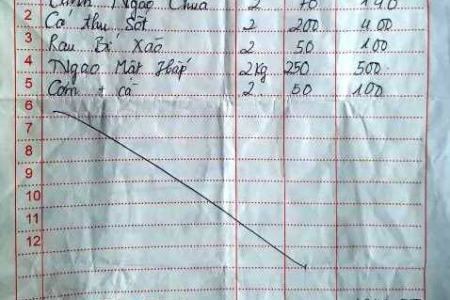 Canh Ngao Chua 2 70 140
2 Cá thu Sốt 2 200 400
3 Rau Bí Xào 2 50 100
4 Ngao Mật Hấp 2kg 250 500
5 Cơm + cà 2 50 100
6
7
8
9
10
11
12